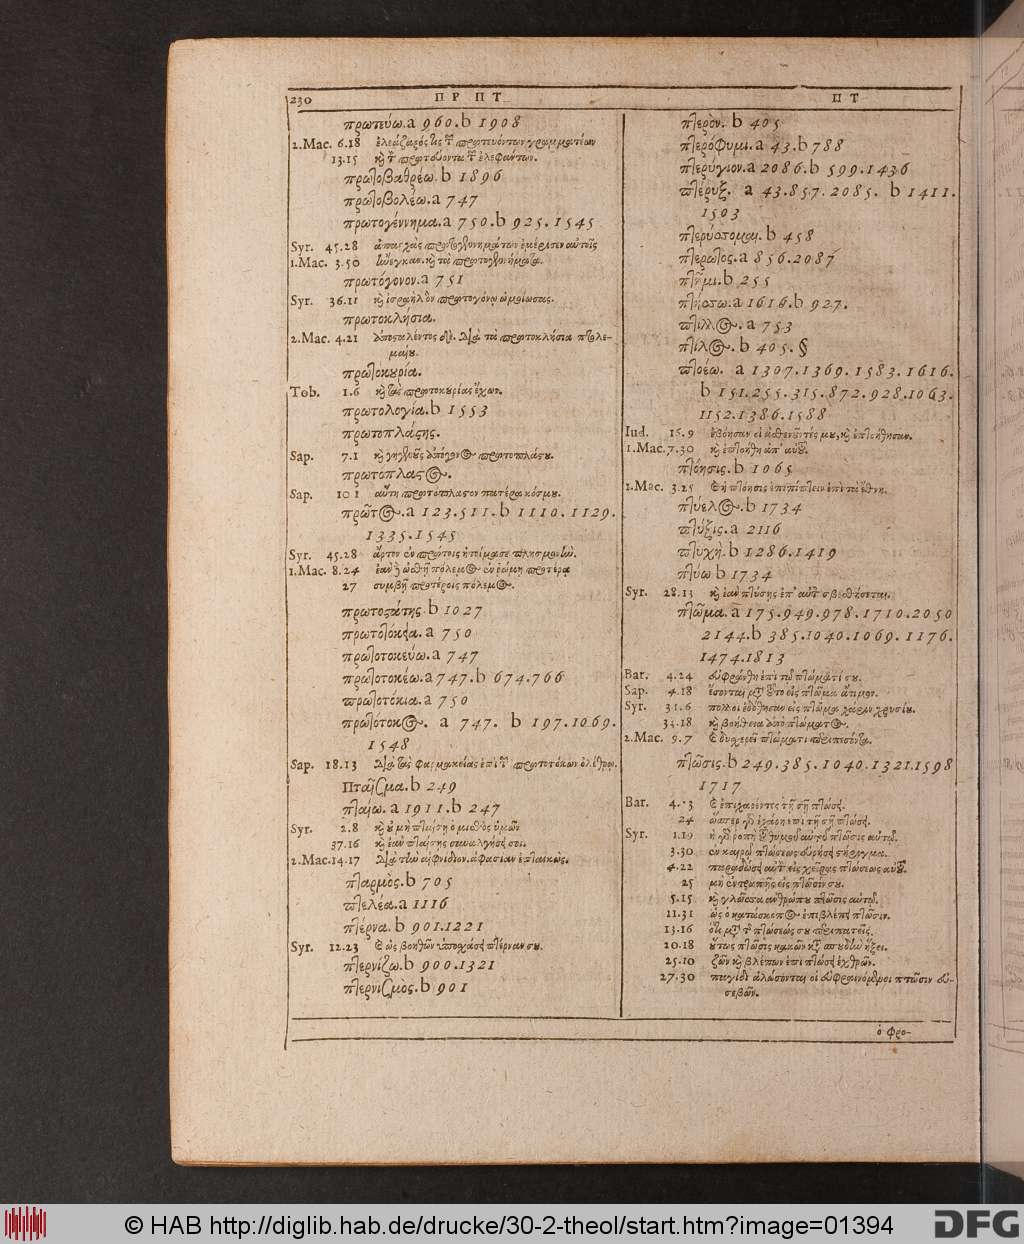 230 Π Ρ Π Τ
πρωτεύω. a 960. b 1908
2. Mac. 6.18 ἐλεάζαρός τις τ πρωτευόντων γραμματέων
13.15 κὶ τ πρωτεύοντα τ ἐλεφάντων.
πρωτοβαθρέω. b 1896
πρωτοβολέω. a 747
πρωτογέννημα. a 750. b 925. 1545
Syr. 45.28 ἀπαρχὰς πρωτογεννημάτων ἐμέρισεν αὐτοῖς
1. Mac. 3.50 κὶ τὰ πρωτογεννήματα.
πρωτόγονον. a 751
Syr. 36.11 κὶ ἰσραὴλ ὃν πρωτογόνῳ ὡμοίωσας.
πρωτοκλήσια.
2. Mac. 4.21 διὰ τὰ πρωτοκλήσια πτολε-
μαίου.
πρωτοκυρία.
Tob. 1.6 κὶ τὰς πρωτοκυρίας ἔχων.
πρωτολογία. b 1553
πρωτοπλάστης.
Sap. 7.1 κὶ γηγενοῦς ἀπόγονος πρωτοπλάστου.
πρωτοπλαστος.
Sap. 10 1 αὕτη πρωτόπλαστον πατέρα κόσμου.
πρῶτος. a 123. 511. b 1110. 1129.
1335. 1545
Syr. 45.28 ἄρτον ἐν πρώτοις ἡτοίμασε πλησμονὴν.
1. Mac. 8.24 ἐὰν ᾖ πόλεμος ἐν ῥώμῃ προτέρᾳ
27 συμβῇ προτέροις πόλεμος.
πρωτοστάτης. b 1027
πρωτοτόκεια. a 750
πρωτοτοκεύω. a 747
πρωτοτοκέω. a 747. b 674. 766
πρωτοτόκια. a 750
πρωτότοκος. a 747. b 197. 1069.
1548
Sap. 18.13 διὰ τὰς φαρμακείας ἐπὶ τ πρωτοτόκων ὀλέθρῳ.
Πταῖσμα. b 249
πταίω. a 1911. b 247
Syr. 2.8 κὶ οὐ μὴ πταίσῃ ὁ μισθὸς ὑμῶν
37.16 κὶ ἐὰν πταίσῃς συναλγήσῃ σοι.
2. Mac. 14.17 διὰ τὴν αἰφνίδιον. ἀφασίαν ἐπταικὼς.
πταρμὸς. b 705
πτελέα. a 1116
πτέρνα. b 901. 1221
Syr. 12.23 ὡς βοηθῶν ὑποσχάσῃ πτέρναν σου.
πτερνίζω. b 900. 1321
πτερνισμὸς. b 901
Π Τ
πτερὸν. b 405
πτερόφυμι. a 43. b 788
πτερύγιον. a 2086. b 599. 1436
πτέρυξ. a 43. 857. 2085. b 1411.
1503
πτερύσσομαι. b 458
πτερωτὸς. a 856. 2087
πτῆμι. b 255
πτήσσω. a 1616. b 927.
πτιλλος. a 753
πτίλος. b 405. §
πτοέω. a 1307. 1369. 1583. 1616.
b 151. 255. 315. 872. 928. 1063.
1152. 1386. 1588
Iud. 16.9 ἐβόησαν οἱ ἀσθενοῦντές μου, κὶ ἐπτοήθησαν.
1. Mac. 7.30 κὶ ἐπτοήθη ἀπ' αὐτοῦ.
πτόησις. b 1065
1. Mac. 3.25 ἡ πτόησις ἐπιπίπτειν ἐπὶ τὰ ἔθνη.
πτύελος. b 1734
πτύξις. a 2116
πτυχὴ. b 1286. 1419
πτύω b 1734
Syr. 28.13 κὶ ἐὰν πτύσῃς ἐπ' αὐτ σβεσθήσεται.
πτῶμα. a 175. 949. 978. 1710. 2050
2144. b 385. 1040. 1069. 1176.
1474. 1813
Bar. 4.24 εὐφράνθη ἐπὶ τῷ πτώματί σου.
Sap. 4.18 ἔσονται μτ τοῦτο εἰς πτῶμα ἄτιμον.
Syr. 31.6 πολλοὶ ἐδόθησαν εἰς πτῶμα χάριν χρυσίου.
34.18 κὶ βοήθεια ἀπὸ πτώματος.
2. Mac. 9.7 δυσχερεῖ πτώματι περιπεσόντα.
πτῶσις. b 249. 385. 1040. 1321. 1598
1717
Bar. 4.3 ἐπιχαρέντες τῇ σῇ πτώσει.
24 ὥσπερ γὸ ἐχάρη ἐπὶ τῇ σῇ πτώσει.
Syr. 1.19 ἡ γὸ ῥοπὴ τοῦ θυμοῦ αὐτοῦ πτῶσις αὐτῷ.
3.30 ἐν καιρῷ πτώσεως εὑρήσει στήριγμα.
4.22 παραδώσει αὐτ εἰς χεῖρας πτώσεως αὐτοῦ.
25 μὴ ἐντραπῇς εἰς πτῶσίν σου.
5.15 κὶ γλῶσσα ἀνθρώπου πτῶσις αὐτῷ.
11.31 ὡς ὁ κατάσκοπος ἐπιβλέπει πτῶσιν.
13.16 ὅτι μτ τ πτώσεώς σου περιπατεῖς.
20.18 οὕτως πτῶσις κακῶν κτ σπουδὴν ἥξει.
25.10 ζῶν κὶ βλέπων ἐπὶ πτώσει ἐχθρῶν.
27.30 παγίδι ἁλώσονται οἱ εὐφραινόμενοι πτῶσιν εὐ-
σεβῶν.
ὁ φρο-
© HAB http://diglib.hab.de/drucke/30-2-theol/start.htm?image=01394
DFG